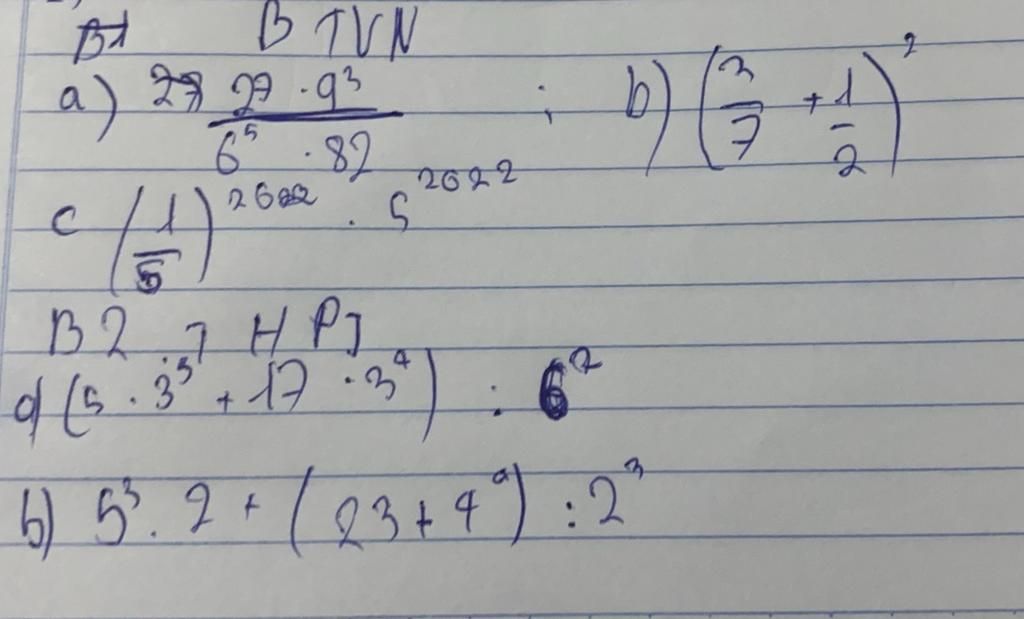 B1 BTVN
a) 27 27 · 9³ / 6⁵ · 82 ; b) (3/7 + 1/2)²
c (1/5)²⁰²² · 5²⁰²²
B2
a) (5 · 3⁵ + 17 · 3⁴) : 6²
b) 5³ · 2 + (23 + 4⁰) : 2³